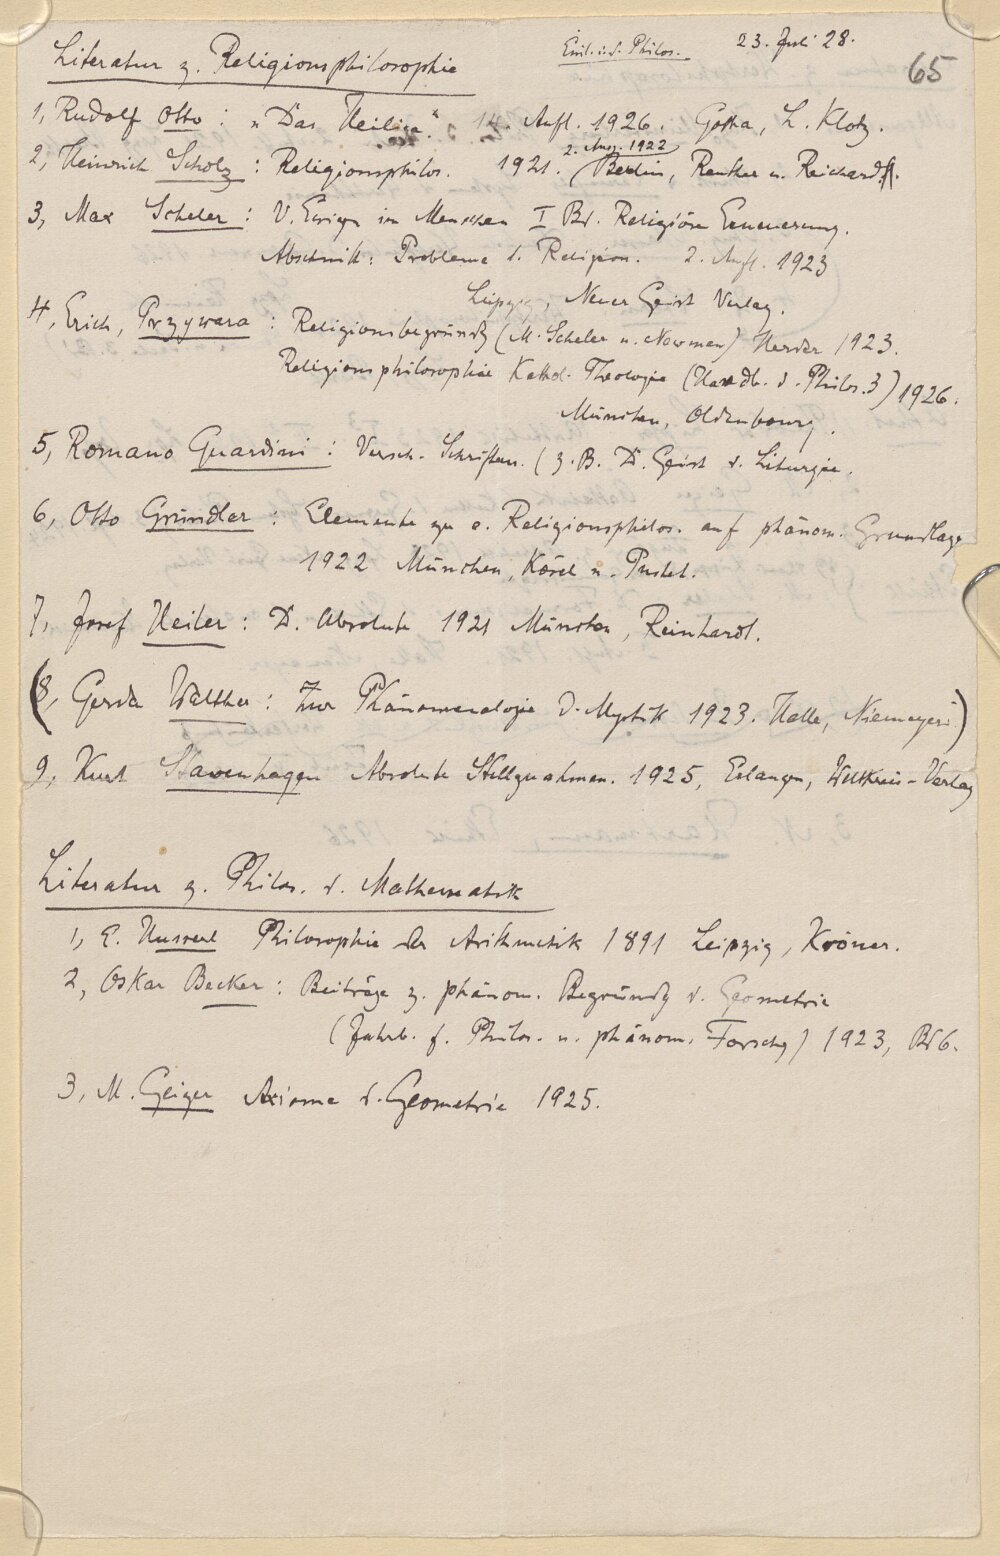 Einl. i. d. Philos. 23. Juli 28.
65
Literatur z. Religionsphilosophie
1, Rudolf Otto : „Das Heilige". 14. Aufl. 1926. Gotha, L. Klotz.
2. Aufl. 1922
2, Heinrich Scholz : Religionsphilos. 1921. Berlin, Reuther u. Reichardt.
3, Max Scheler : V. Ewigen im Menschen I Bd. Religiöse Erneuerung.
Abschnitt: Probleme d. Religion. 2. Aufl. 1923
Leipzig, Neuer Geist Verlag.
4, Erich, Przywara : Religionsbegründg (M. Scheler u. Newman) Herder 1923.
Religionsphilosophie Kathol. Theologie (Handb. d. Philos. 3) 1926.
München, Oldenbourg.
5, Romano Guardini : Versch. Schriften. (z. B. D. Geist d. Liturgie.
6, Otto Gründler : Elemente zu e. Religionsphilos. auf phänom. Grundlage
1922 München, Kösel u. Pustet.
7, Josef Heiler : D. Absolute 1921 München, Reinhardt.
(8, Gerda Walther : Zur Phänomenologie d. Mystik 1923. Halle, Niemeyer)
9, Kurt Stavenhagen Absolute Stellgnahmen. 1925, Erlangen, Weltkreis-Verlag
Literatur z. Philos. d. Mathematik
1, E. Husserl Philosophie der Arithmetik 1891 Leipzig, Kröner.
2, Oskar Becker : Beiträge z. phänom. Begründg d. Geometrie
(Jahrb. f. Philos. u. phänom. Forschg) 1923, Bd 6.
3, M. Geiger Axiome d. Geometrie 1925.